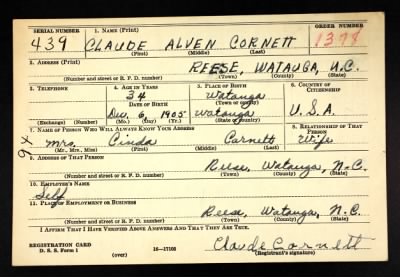 SERIAL NUMBER 1. NAME (Print) ORDER NUMBER
439 CLAUDE ALVEN CORNETT 1378
(First) (Middle) (Last)
2. ADDRESS (Print)
REESE, WATAUGA, N.C.
(Number and street or R. F. D. number) (Town) (County) (State)
3. TELEPHONE 4. AGE IN YEARS 5. PLACE OF BIRTH 6. COUNTRY OF CITIZENSHIP
34 Watauga
DATE OF BIRTH (Town or county)
Dec. 6, 1905 Watauga U.S.A.
(Exchange) (Number) (Mo.) (Day) (Yr.) (State or country)
7. NAME OF PERSON WHO WILL ALWAYS KNOW YOUR ADDRESS 8. RELATIONSHIP OF THAT PERSON
Mrs. Cinda Cornett Wife
(Mr., Mrs., Miss) (First) (Middle) (Last)
9. ADDRESS OF THAT PERSON
Reese, Watauga, N.C.
(Number and street or R. F. D. number) (Town) (County) (State)
10. EMPLOYER'S NAME
Self
11. PLACE OF EMPLOYMENT OR BUSINESS
Reese, Watauga, N.C.
(Number and street or R. F. D. number) (Town) (County) (State)
I AFFIRM THAT I HAVE VERIFIED ABOVE ANSWERS AND THAT THEY ARE TRUE.
REGISTRATION CARD
D. S. S. Form 1 (over) 16—17105
Claude Cornett
(Registrant's signature)